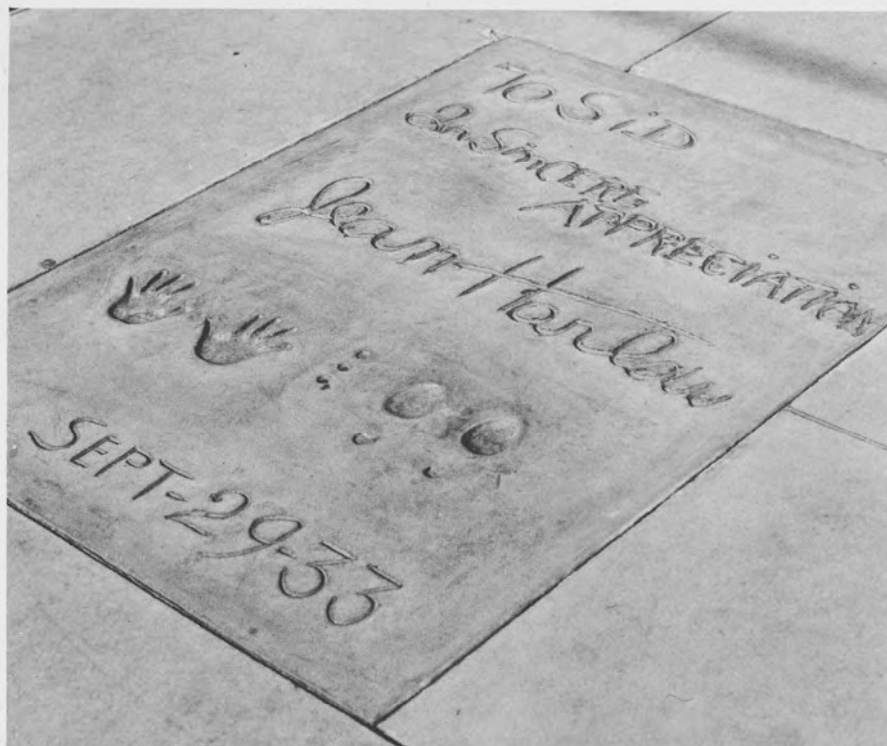 TO SiD
In SinCERE
APPRECIATION
Jean Harlow
SEPT-29-33